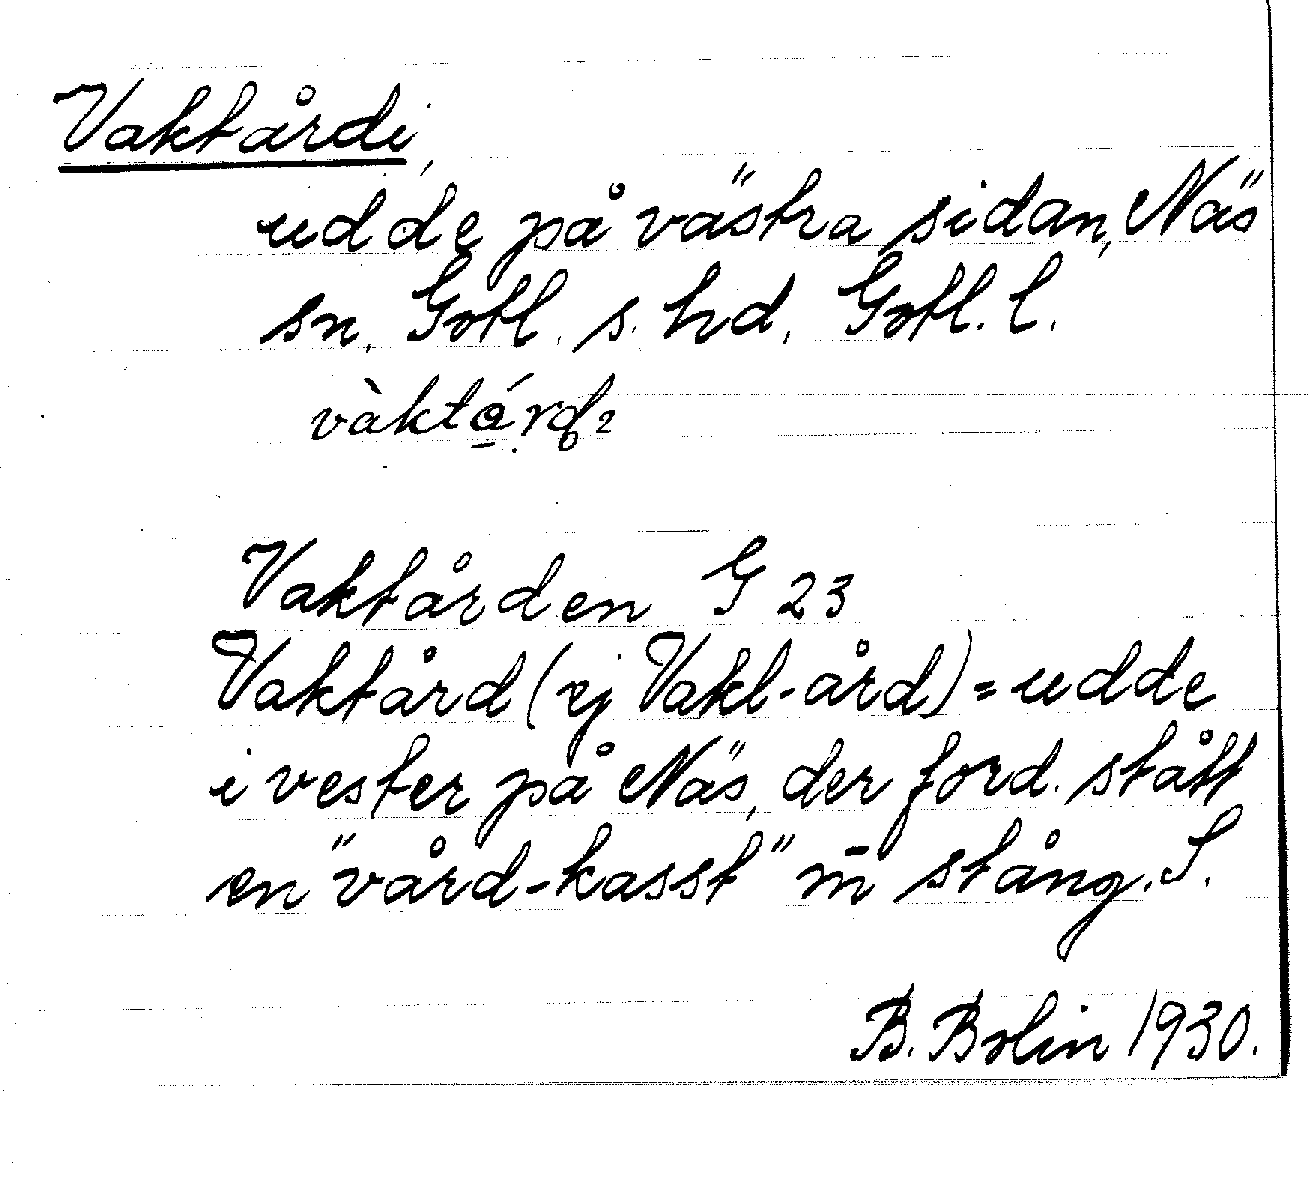 Vaktårdi,
udde på västra sidan, Näs
sn, Gotl. s. hd, Gotl. l.
Vaktården G 23
Vaktård (ej Vakl-ård) = udde
i vester på Näs, der ford. stått
en "vård-kasst" m̄ stång. S.
B. Bolin 1930.